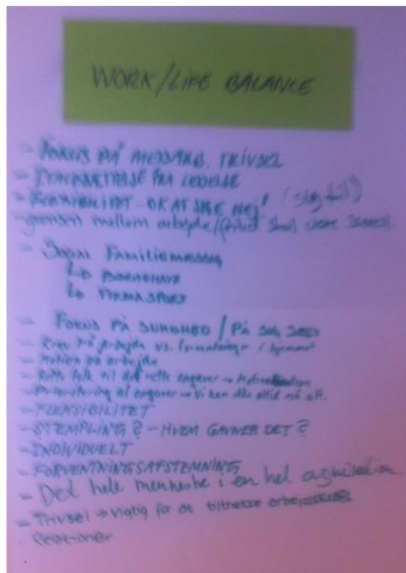 WORK/LIFE BALANCE
- FOKUS PÅ MEDARB. TRIVSEL
FRA LEDELSE
- OK AT SIGE NEJ!
grænsen mellem arbejde/fritid skal være
- SOCIAL FAMILIEMÆSSIG
↳ BØRNEHAVE
↳ FIRMASPORT
- FOKUS PÅ SUNDHED / PÅ
- Krav på arbejde vs. forventninger i hjemmet
- Motion på arbejde
- Rette folk til det rette opgaver →
- Prioritering af opgaver → Vi kan ikke altid nå alt.
- FLEKSIBILITET
- STEMPLING? - HVEM GAVNER DET?
- INDIVIDUELT
- FORVENTNINGSAFSTEMNING
- Det hele menneske i en hel organisation
- Trivsel → vigtig for at tiltrække arbejdskraft
- Relationer